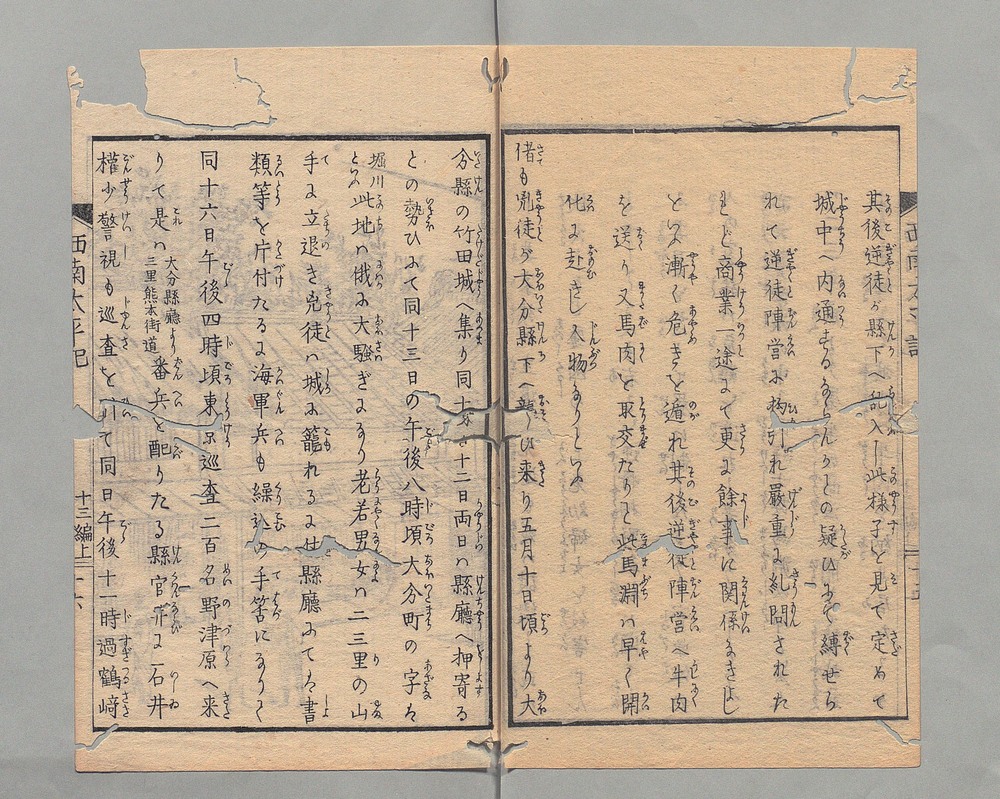 其後逆徒が縣下へ乱入し此様子を見て定めて
城中へ内通するならんかとの疑ひにて縛せら
れて逆徒陣営に拘引れ嚴重に糺問された
れど商業一途にて更に餘事に関係なきよし
といふ漸く危きを遁れ其後逆徒陣営へ牛肉
を送り又馬肉を取交たりと此馬淵ハ早く開
化に赴きし人物なりといふ
偖も兇徒が大分縣下へ襲ひ来り五月十日頃より大
分縣の竹田城へ集り同十一十二日両日ハ縣廳へ押寄る
との勢ひにて同十三日の午後八時頃大分町の字を
堀川といふ此地ハ俄に大騒ぎなり老若男女ハ二三里の山
手に立退き兇徒ハ城に籠れるよせ縣廳にてハ書
類等を片付たるに海軍兵も繰込の手筈になりかく
同十六日午後四時頃東京巡査二百名野津原へ来
りて是ハ大分縣廳より三里熊本街道番兵を配りたる縣官并に石井
権少警視も巡査を引て同日午後十一時過鶴﨑
西南太平記
十三編上
十六